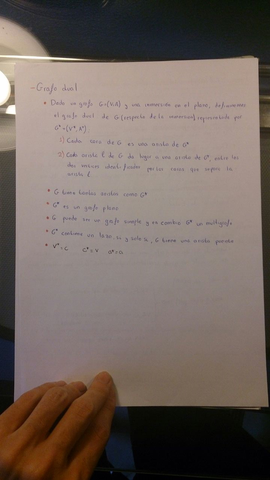 - Grafo dual
• Dado un grafo G=(V,A) y una inmersión en el plano, definimos
el grafo dual de G (respecto de la inmersión) representado por
G*=(V*,A*).
1) Cada cara de G es una de G*
2) Cada arista l de G da lugar a una arista de G*, entre los
dos por las caras que separa la
arista l.
• G tiene tantas aristas como G*
• G* es un grafo plano
• G puede ser un grafo simple y en cambio G* un multigrafo
• G* contiene un lazo, si y solo si, G tiene una arista puente
• V*=C C*=V